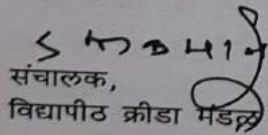 संचालक,
विद्यापीठ क्रीडा मंडळ